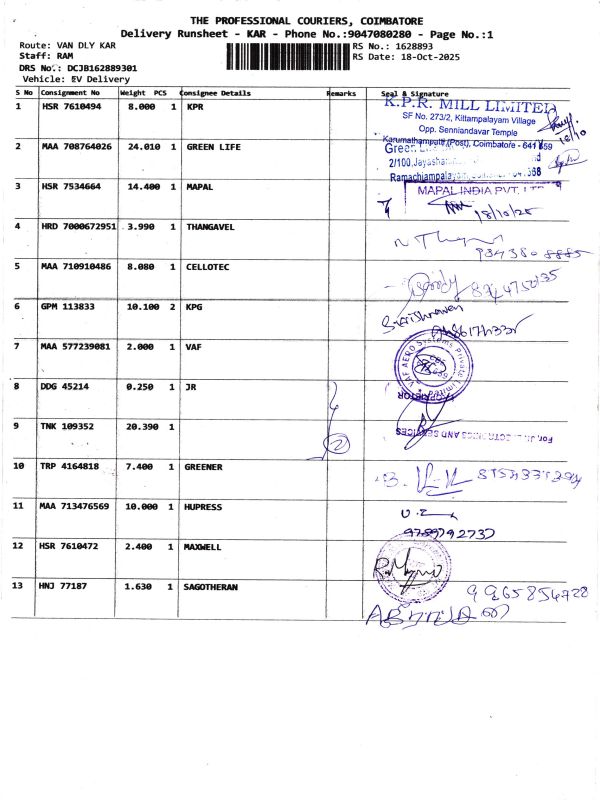 THE PROFESSIONAL COURIERS, COIMBATORE
Delivery Runsheet - KAR - Phone No.:9047080280 - Page No.:1
Route: VAN DLY KAR RS No.: 1628893
Staff: RAM RS Date: 18-Oct-2025
DRS No.: DCJB162889301
Vehicle: EV Delivery
S No Consignment No Weight PCS Consignee Details Remarks Seal & Signature
1 HSR 7610494 8.000 1 KPR
K.P.R. MILL LIMITED
SF No. 273/2, Kittampalayam Village
Opp. Senniandavar Temple
Karumathampatti (Post), Coimbatore - 641 659
18/10
2 MAA 708764026 24.010 1 GREEN LIFE
Green
2/100,
Ramachjampalayam,
3 HSR 7534664 14.400 1 MAPAL
MAPAL INDIA PVT. LTD
18/10/25
4 HRD 7000672951 3.990 1 THANGAVEL
5 MAA 710910486 8.080 1 CELLOTEC
6 GPM 113833 10.100 2 KPG
7 MAA 577239081 2.000 1 VAF
VAF AERO Systems Private Limited
8 DDG 45214 0.250 1 JR
9 TNK 109352 20.390 1
2
For. JR ELECTRONICS AND SERVICES
PROPRIETOR
10 TRP 4164818 7.400 1 GREENER
11 MAA 713476569 10.000 1 HUPRESS
9789792737
12 HSR 7610472 2.400 1 MAXWELL
13 HNJ 77187 1.630 1 SAGOTHERAN
9965854728